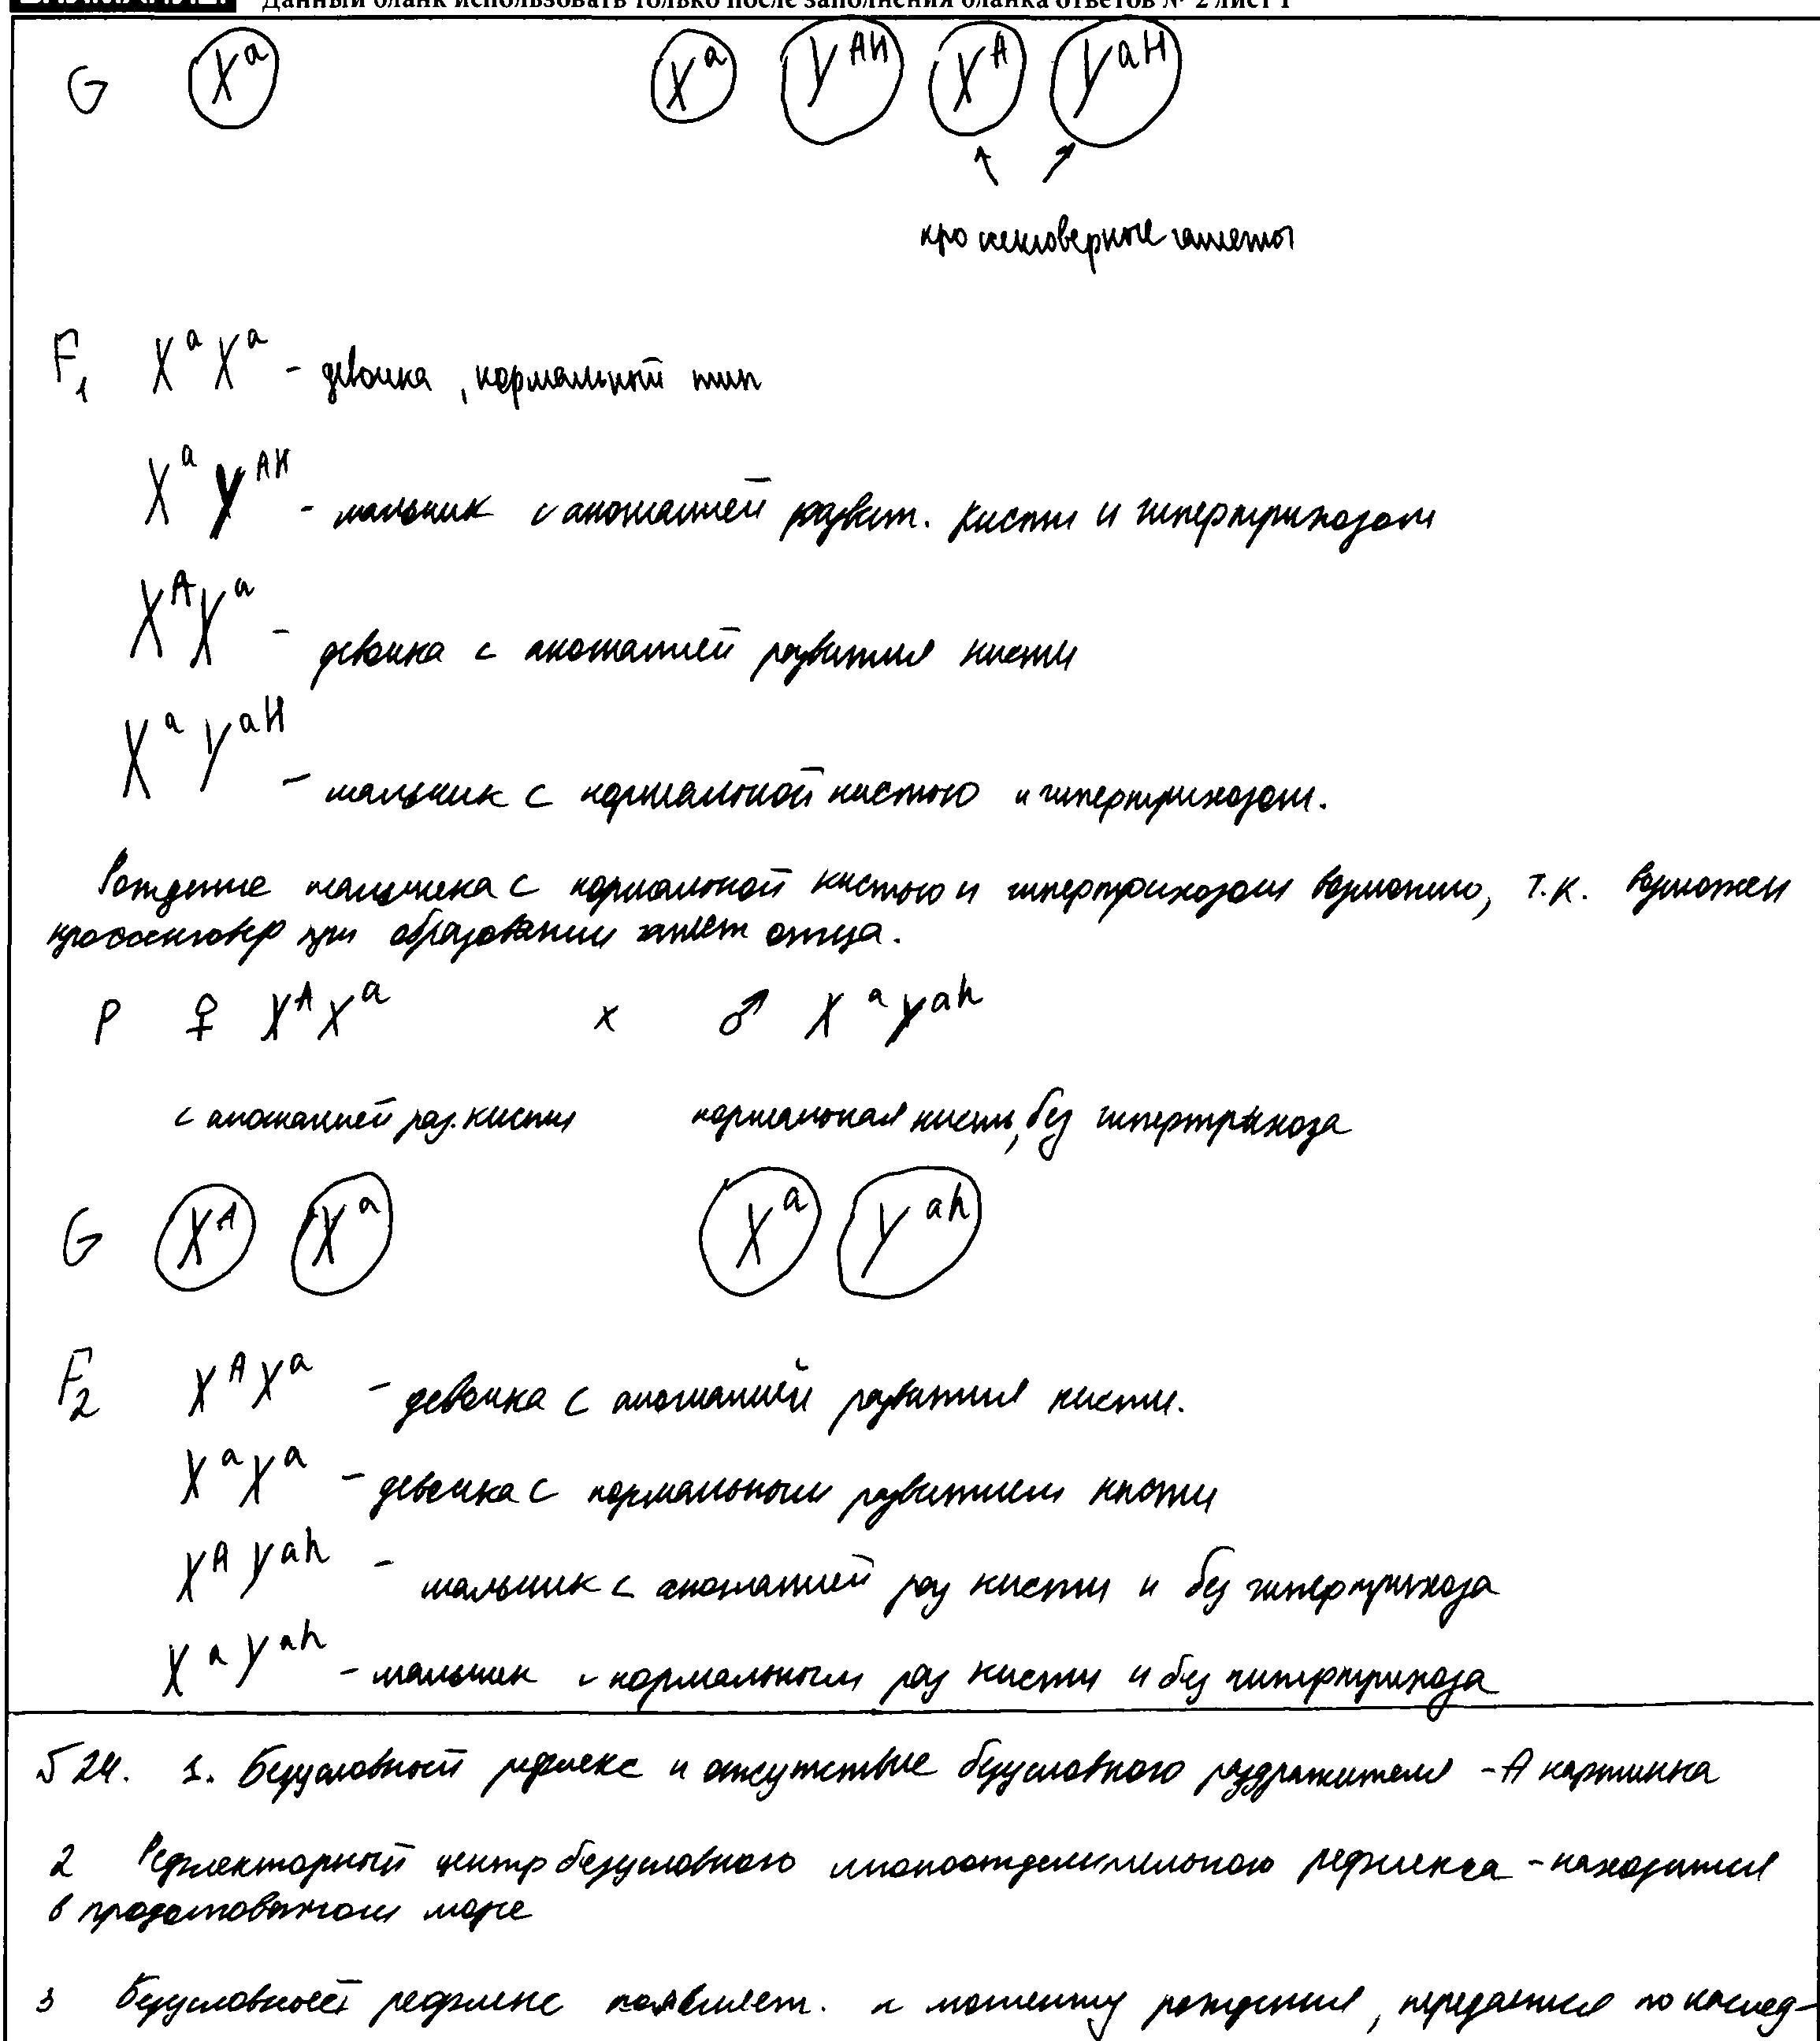 Данный бланк использовать только после заполнения бланка ответов № 2 лист 1
G X^a X^a Y^AH X^A Y^aH
кроссинговерные гаметы
F1 X^a X^a - девочка, нормальный тип
X^a Y^AH - мальчик с аномалией развит. кисти и гипертрихозом
X^A X^a - девочка с аномалией развития кисти
X^a Y^aH - мальчик с нормальной кистью и гипертрихозом.
Рождение мальчика с нормальной кистью и гипертрихозом возможно, т.к. возможен
кроссинговер при образовании гамет отца.
P ♀ X^A X^a x ♂ X^a Y^ah
с аномалией раз. кисти нормальная кисть, без гипертрихоза
G X^A X^a X^a Y^ah
F2 X^A X^a - девочка с аномалией развития кисти.
X^a X^a - девочка с нормальным развитием кисти
X^A Y^ah - мальчик с аномалией раз кисти и без гипертрихоза
X^a Y^ah - мальчик с нормальным раз кисти и без гипертрихоза
№24. 1. Безусловный рефлекс и отсутствие безусловного раздражителя - А картинка
2 Рефлекторный центр безусловного слюноотделительного рефлекса - находится
в продолговатом мозге
3 Безусловный рефлекс появляет. к моменту рождения, передается по наслед-